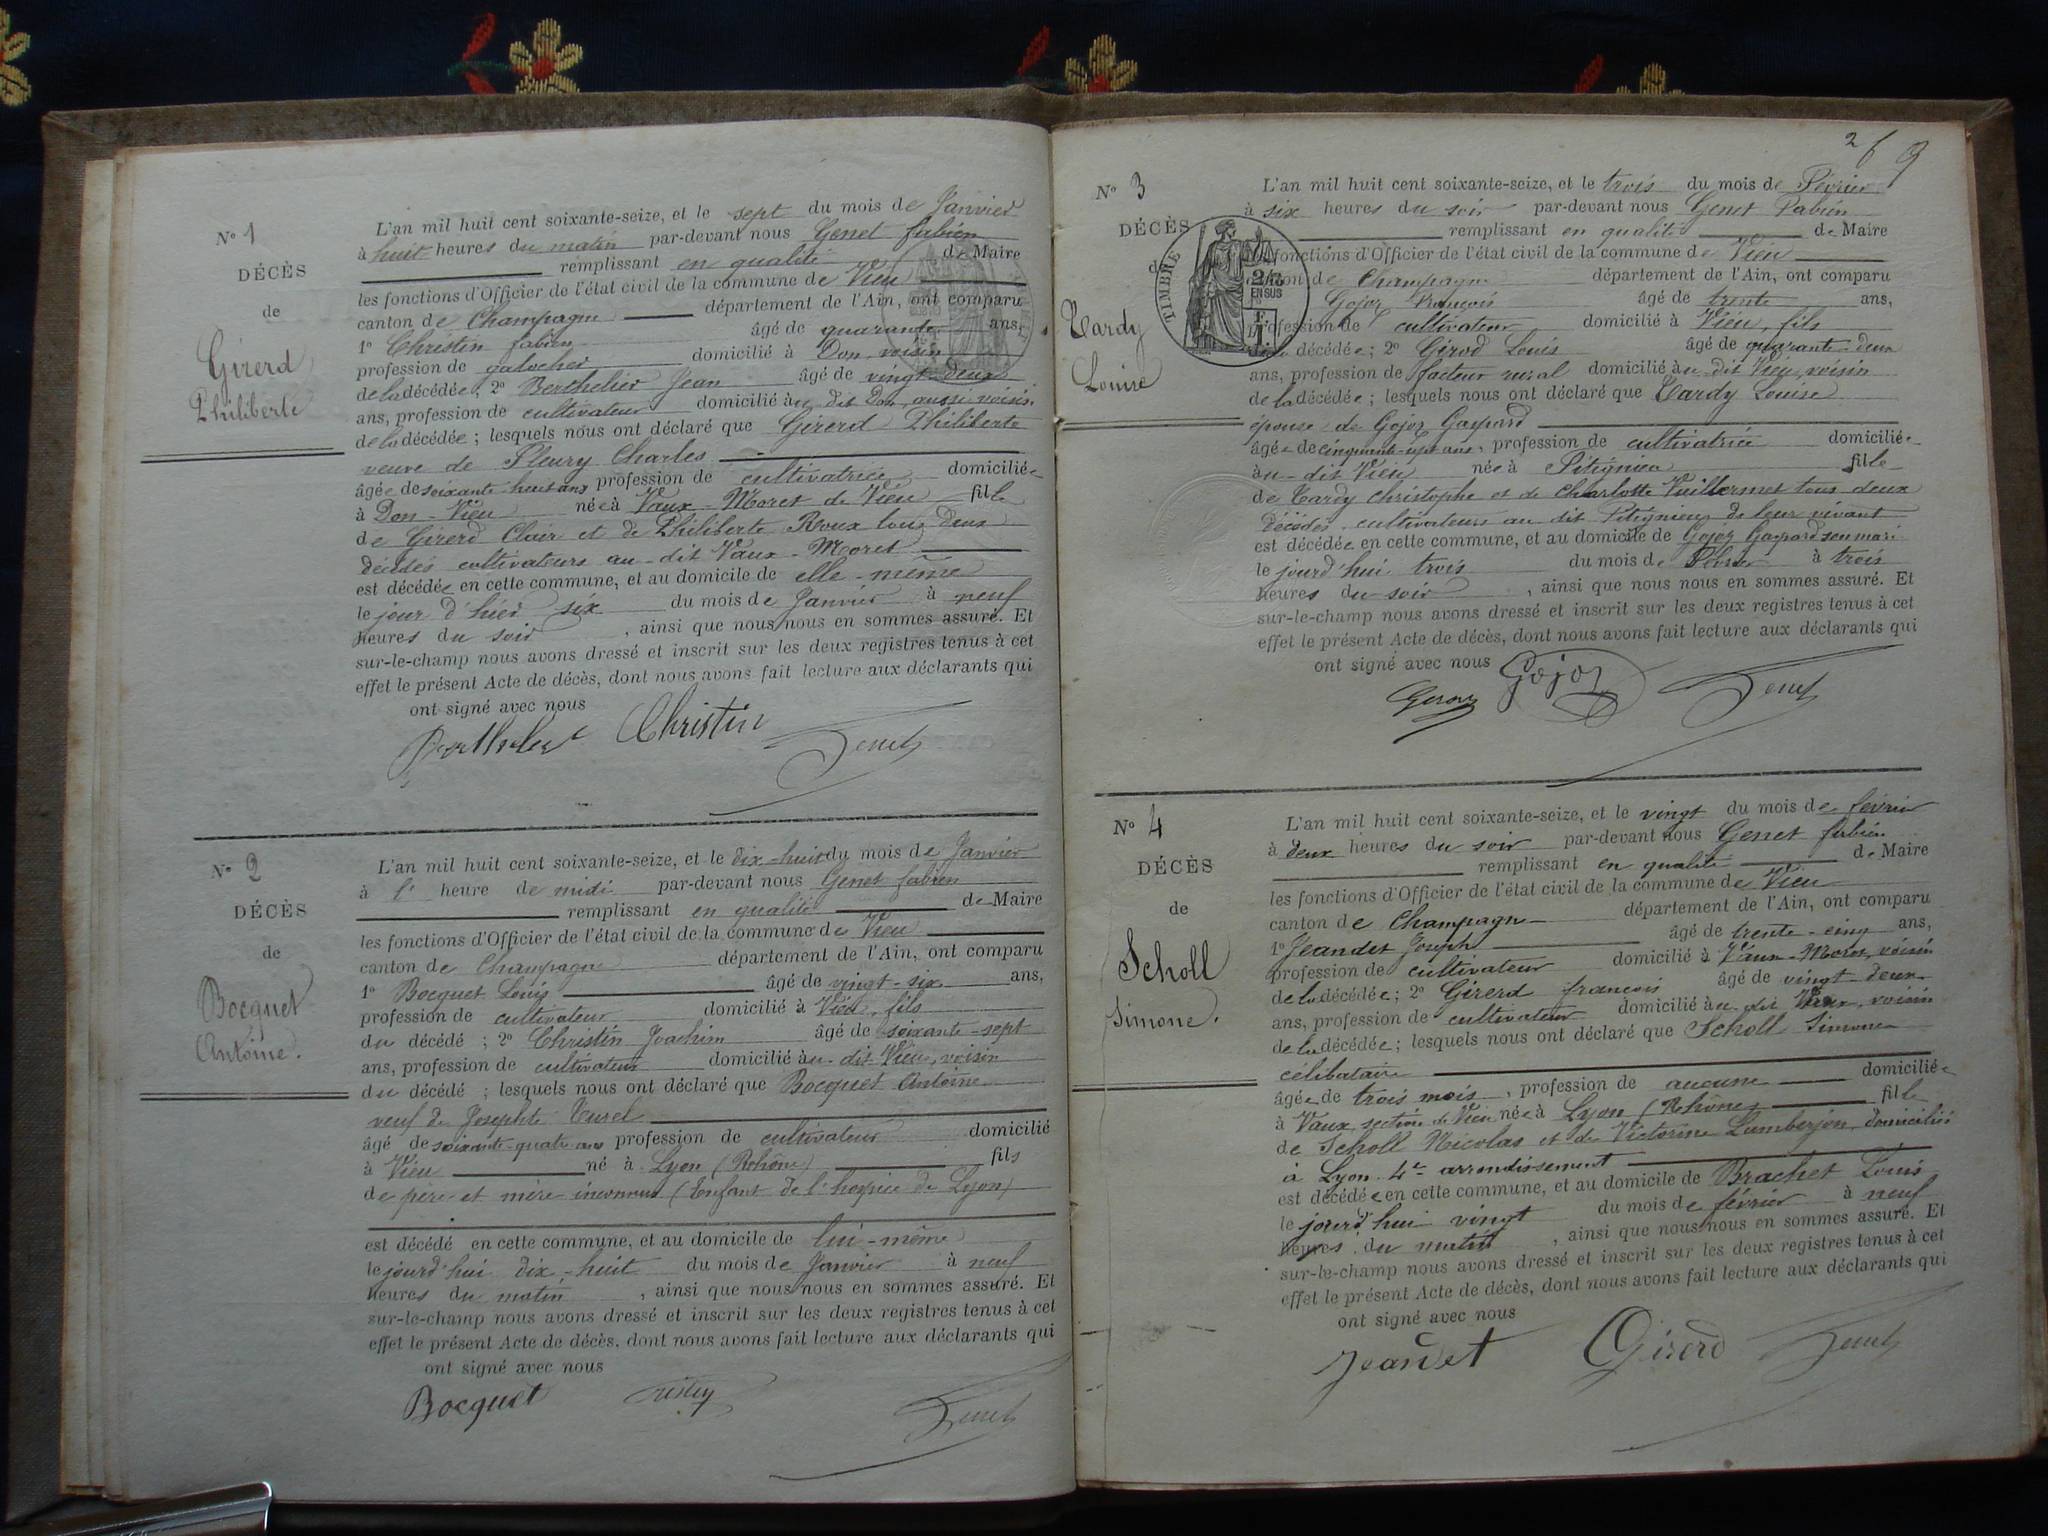 N° 1
DÉCÈS
de
Girerd
Philiberte
L'an mil huit cent soixante-seize, et le sept du mois de Janvier
à huit heures du matin par-devant nous Genet fabien
remplissant en qualité de Maire
les fonctions d'Officier de l'état civil de la commune de Vieu
canton de Champagne département de l'Ain, ont comparu
1° Christin fabien âgé de quarante ans,
profession de galocher domicilié à Don, voisin
de la décédée, 2° Berthelier Jean âgé de vingt-deux
ans, profession de cultivateur domicilié au dit Don, aussi voisin
de la décédée ; lesquels nous ont déclaré que Girerd Philiberte
veuve de Fleury Charles
âgée de soixante huit ans profession de cultivatrice domiciliée
à Don-Vieu née à Vaux-Moret de Vieu fille
de Girerd Clair et de Philiberte Roux tous deux
décédés cultivateurs au-dit Vaux-Moret
est décédée en cette commune, et au domicile de elle-même
le jour d'hier six du mois de Janvier à neuf
heures du soir , ainsi que nous nous en sommes assuré. Et
sur-le-champ nous avons dressé et inscrit sur les deux registres tenus à cet
effet le présent Acte de décès, dont nous avons fait lecture aux déclarants qui
ont signé avec nous
Berthelier Christin Genet
N° 2
DÉCÈS
de
Bocquet
Antoine.
L'an mil huit cent soixante-seize, et le dix-huit du mois de Janvier
à l' heure de midi par-devant nous Genet fabien
remplissant en qualité de Maire
les fonctions d'Officier de l'état civil de la commune de Vieu
canton de Champagne département de l'Ain, ont comparu
1° Bocquet Louis âgé de vingt-six ans,
profession de cultivateur domicilié à Vieu, fils
du décédé ; 2° Christin Joachim âgé de soixante-sept
ans, profession de cultivateur domicilié au-dit Vieu, voisin
du décédé ; lesquels nous ont déclaré que Bocquet Antoine
veuf de Josephte Turel
âgé de soixante-quatre ans profession de cultivateur domicilié
à Vieu né à Lyon (Rohône) fils
de père et mère inconnus (Enfant de l'hospice de Lyon)
est décédé en cette commune, et au domicile de lui-même
le jourd'hui dix-huit du mois de Janvier à neuf
heures du matin , ainsi que nous nous en sommes assuré. Et
sur-le-champ nous avons dressé et inscrit sur les deux registres tenus à cet
effet le présent Acte de décès, dont nous avons fait lecture aux déclarants qui
ont signé avec nous
Bocquet Genet
N° 3
DÉCÈS
de
Tardy
Louise
TIMBRE
EN SUS
L'an mil huit cent soixante-seize, et le trois du mois de Février
à six heures du soir par-devant nous Genet Fabien
remplissant en qualité de Maire
les fonctions d'Officier de l'état civil de la commune de Vieu
canton de Champagne département de l'Ain, ont comparu
1° Gojoz François âgé de trente ans,
profession de cultivateur domicilié à Vieu, fils
décédée ; 2° Girod Louis âgé de quarante-deux
ans, profession de facteur rural domicilié au-dit Vieu, voisin
de la décédée ; lesquels nous ont déclaré que Tardy Louise
épouse de Gojoz Gaspard
âgée de cinquante-sept ans, profession de cultivatrice domiciliée
au-dit Vieu née à Pitignieu fille
de Tardy Christophe et de Charlotte Vuillermet tous deux
décédés cultivateurs au dit Pitignieu de leur vivant
est décédée en cette commune, et au domicile de Gojoz Gaspard son mari
le jourd'hui trois du mois de Février à trois
heures du soir , ainsi que nous nous en sommes assuré. Et
sur-le-champ nous avons dressé et inscrit sur les deux registres tenus à cet
effet le présent Acte de décès, dont nous avons fait lecture aux déclarants qui
ont signé avec nous
Gojoz Genet
N° 4
DÉCÈS
de
Scholl
Simone.
L'an mil huit cent soixante-seize, et le vingt du mois de février
à deux heures du soir par-devant nous Genet fabien
remplissant en qualité de Maire
les fonctions d'Officier de l'état civil de la commune de Vieu
canton de Champagne département de l'Ain, ont comparu
1° Jeandet Joseph âgé de trente-cinq ans,
profession de cultivateur domicilié à Vaux-Moret, voisin
de la décédée ; 2° Girerd françois âgé de vingt-deux
ans, profession de cultivateur domicilié au dit Vaux, voisin
de la décédée ; lesquels nous ont déclaré que Scholl Simone
célibataire
âgée de trois mois, profession de aucune domiciliée
à Vaux section de Vieu née à Lyon (Rhône) fille
de Scholl Nicolas et de Victorine Lumberjon, domiciliés
à Lyon 4e arrondissement
est décédée en cette commune, et au domicile de Brachet Louis
le jourd'hui vingt du mois de février à neuf
heures du matin , ainsi que nous nous en sommes assuré. Et
sur-le-champ nous avons dressé et inscrit sur les deux registres tenus à cet
effet le présent Acte de décès, dont nous avons fait lecture aux déclarants qui
ont signé avec nous
Jeandet Girerd Genet